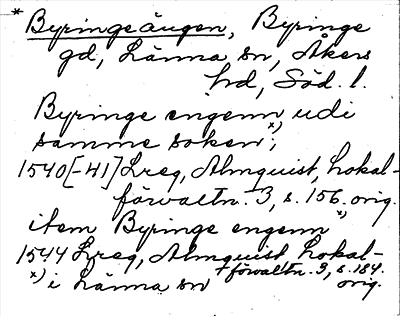 * Byringeängen, Byringe
gd, Länna sn, Åkers
hd, Söd. l.
Byringe engenn udi
samme soken x);
1540[-41] Lreg, Almquist, Lokal-
förvaltn. 3, s. 156. orig.
item Byringe engenn x)
1544 Lreg, Almquist Lokal-
+förvaltn. 3, s. 184.
x) i Länna sn orig.